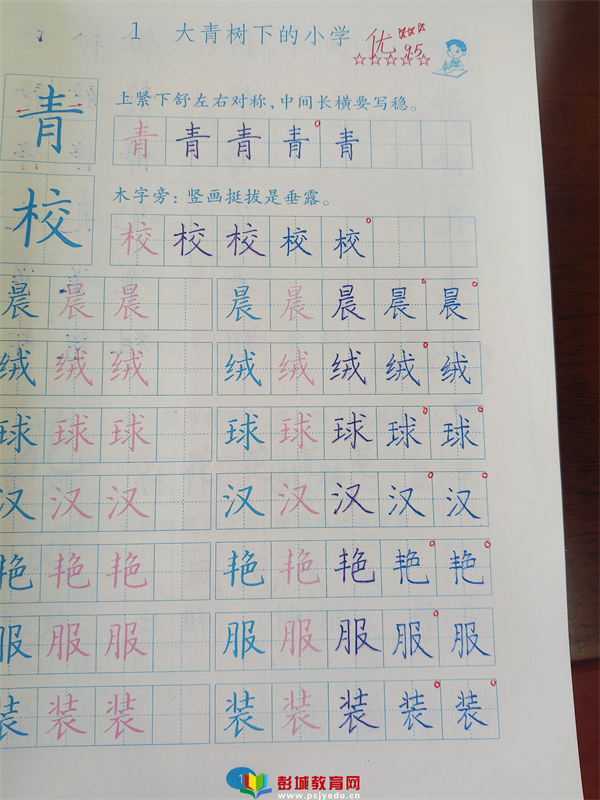 1 大青树下的小学 优 95
上紧下舒左右对称，中间长横要写稳。
青 青 青 青 青 青
木字旁：竖画挺拔是垂露。
校 校 校 校 校 校
晨 晨 晨 晨 晨 晨 晨 晨
绒 绒 绒 绒 绒 绒 绒 绒
球 球 球 球 球 球 球 球
汉 汉 汉 汉 汉 汉 汉 汉
艳 艳 艳 艳 艳 艳 艳 艳
服 服 服 服 服 服 服 服
装 装 装 装 装 装 装 装
1
彭城教育网
www.pcjyedu.cn